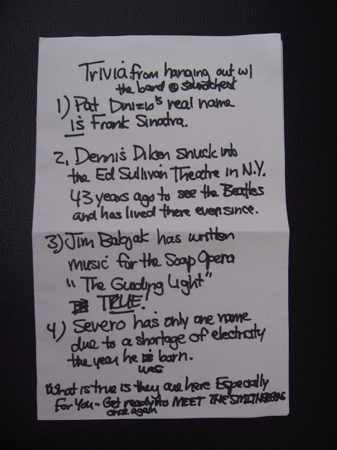 Trivia from hanging out w/
the band @ soundcheck
1) Pat Dinizio's real name
is Frank Sinatra.
2, Dennis Diken snuck into
the Ed Sullivan Theatre in N.Y.
43 years ago to see the Beatles
and has lived there ever since.
3) Jim Babjak has written
music for the Soap Opera
"The Guiding Light"
TRUE.
4) Severo has only one name
due to a shortage of electricity
the year he was born.
What is true is they are here Especially
For You - Get ready to MEET THE SMITHEREENS
once again